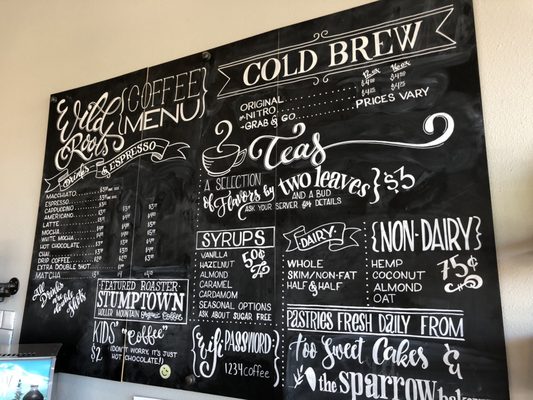 Wild Roots
{COFFEE MENU}
Drinks & ESPRESSO
MACCHIATO
ESPRESSO
CAPPUCCINO
AMERICANO
LATTE
MOCHA
WHITE MOCHA
HOT CHOCOLATE
CHAI
DRIP COFFEE
EXTRA DOUBLE SHOT
MATCHA
All Drinks are double Shots
FEATURED ROASTER:
STUMPTOWN
HOLLER MOUNTAIN Organic COFFEES
KIDS "Coffee"
$2 (DON'T WORRY, IT'S JUST
HOT CHOCOLATE!)
COLD BREW
12oz 16oz
ORIGINAL
→NITRO
→GRAB & GO PRICES VARY
Teas
A SELECTION
of Flavors by two leaves} $3
AND A BUD
ASK YOUR SERVER for DETAILS
SYRUPS
VANILLA
HAZELNUT
ALMOND
CARAMEL
CARDAMOM
SEASONAL OPTIONS
ASK ABOUT SUGAR FREE
50¢
{wifi PASSWORD:
1234coffee}
DAIRY
WHOLE
SKIM/NON-FAT
HALF & HALF
{NON-DAIRY}
HEMP
COCONUT
ALMOND
OAT
75¢
PASTRIES FRESH DAILY FROM
Too Sweet Cakes &
the sparrow bakery